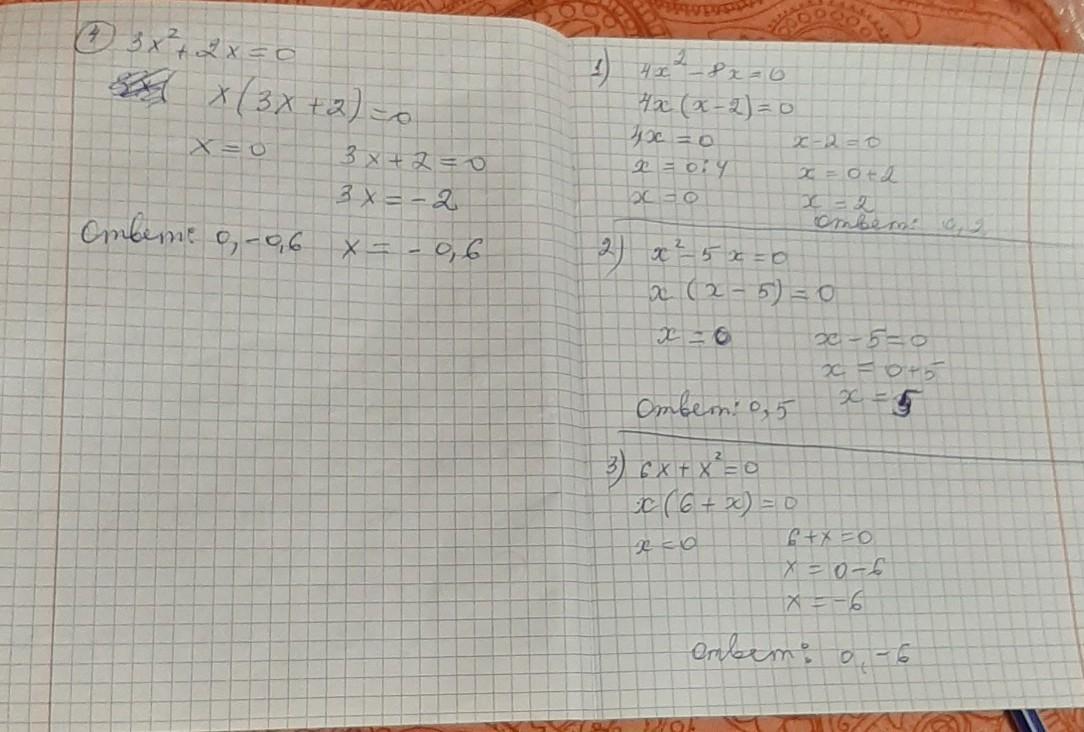 4 3x²+2x=0
x(3x+2)=0
x=0 3x+2=0
3x=-2
Ответ: 0,-0,6 x=-0,6
1) 4x²-8x=0
4x(x-2)=0
4x=0 x-2=0
x=0:4 x=0+2
x=0 x=2
Ответ: 0,2
2) x²-5x=0
x(x-5)=0
x=0 x-5=0
x=0+5
Ответ: 0,5 x=5
3) 6x+x²=0
x(6+x)=0
x=0 6+x=0
x=0-6
x=-6
Ответ: 0,-6